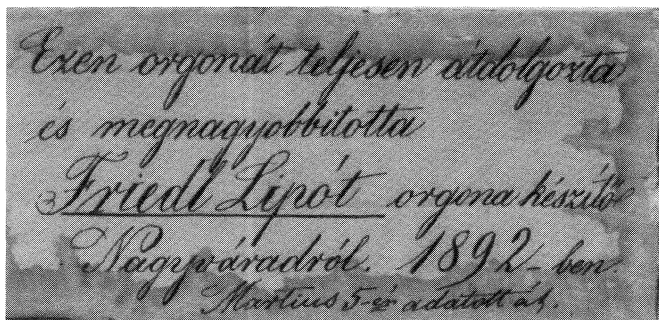 Ezen orgonát teljesen átdolgozta
és megnagyobbitotta
Friedl Lipót orgona készítő
Nagyváradról. 1892-ben.
Martius 5-én adatott át.